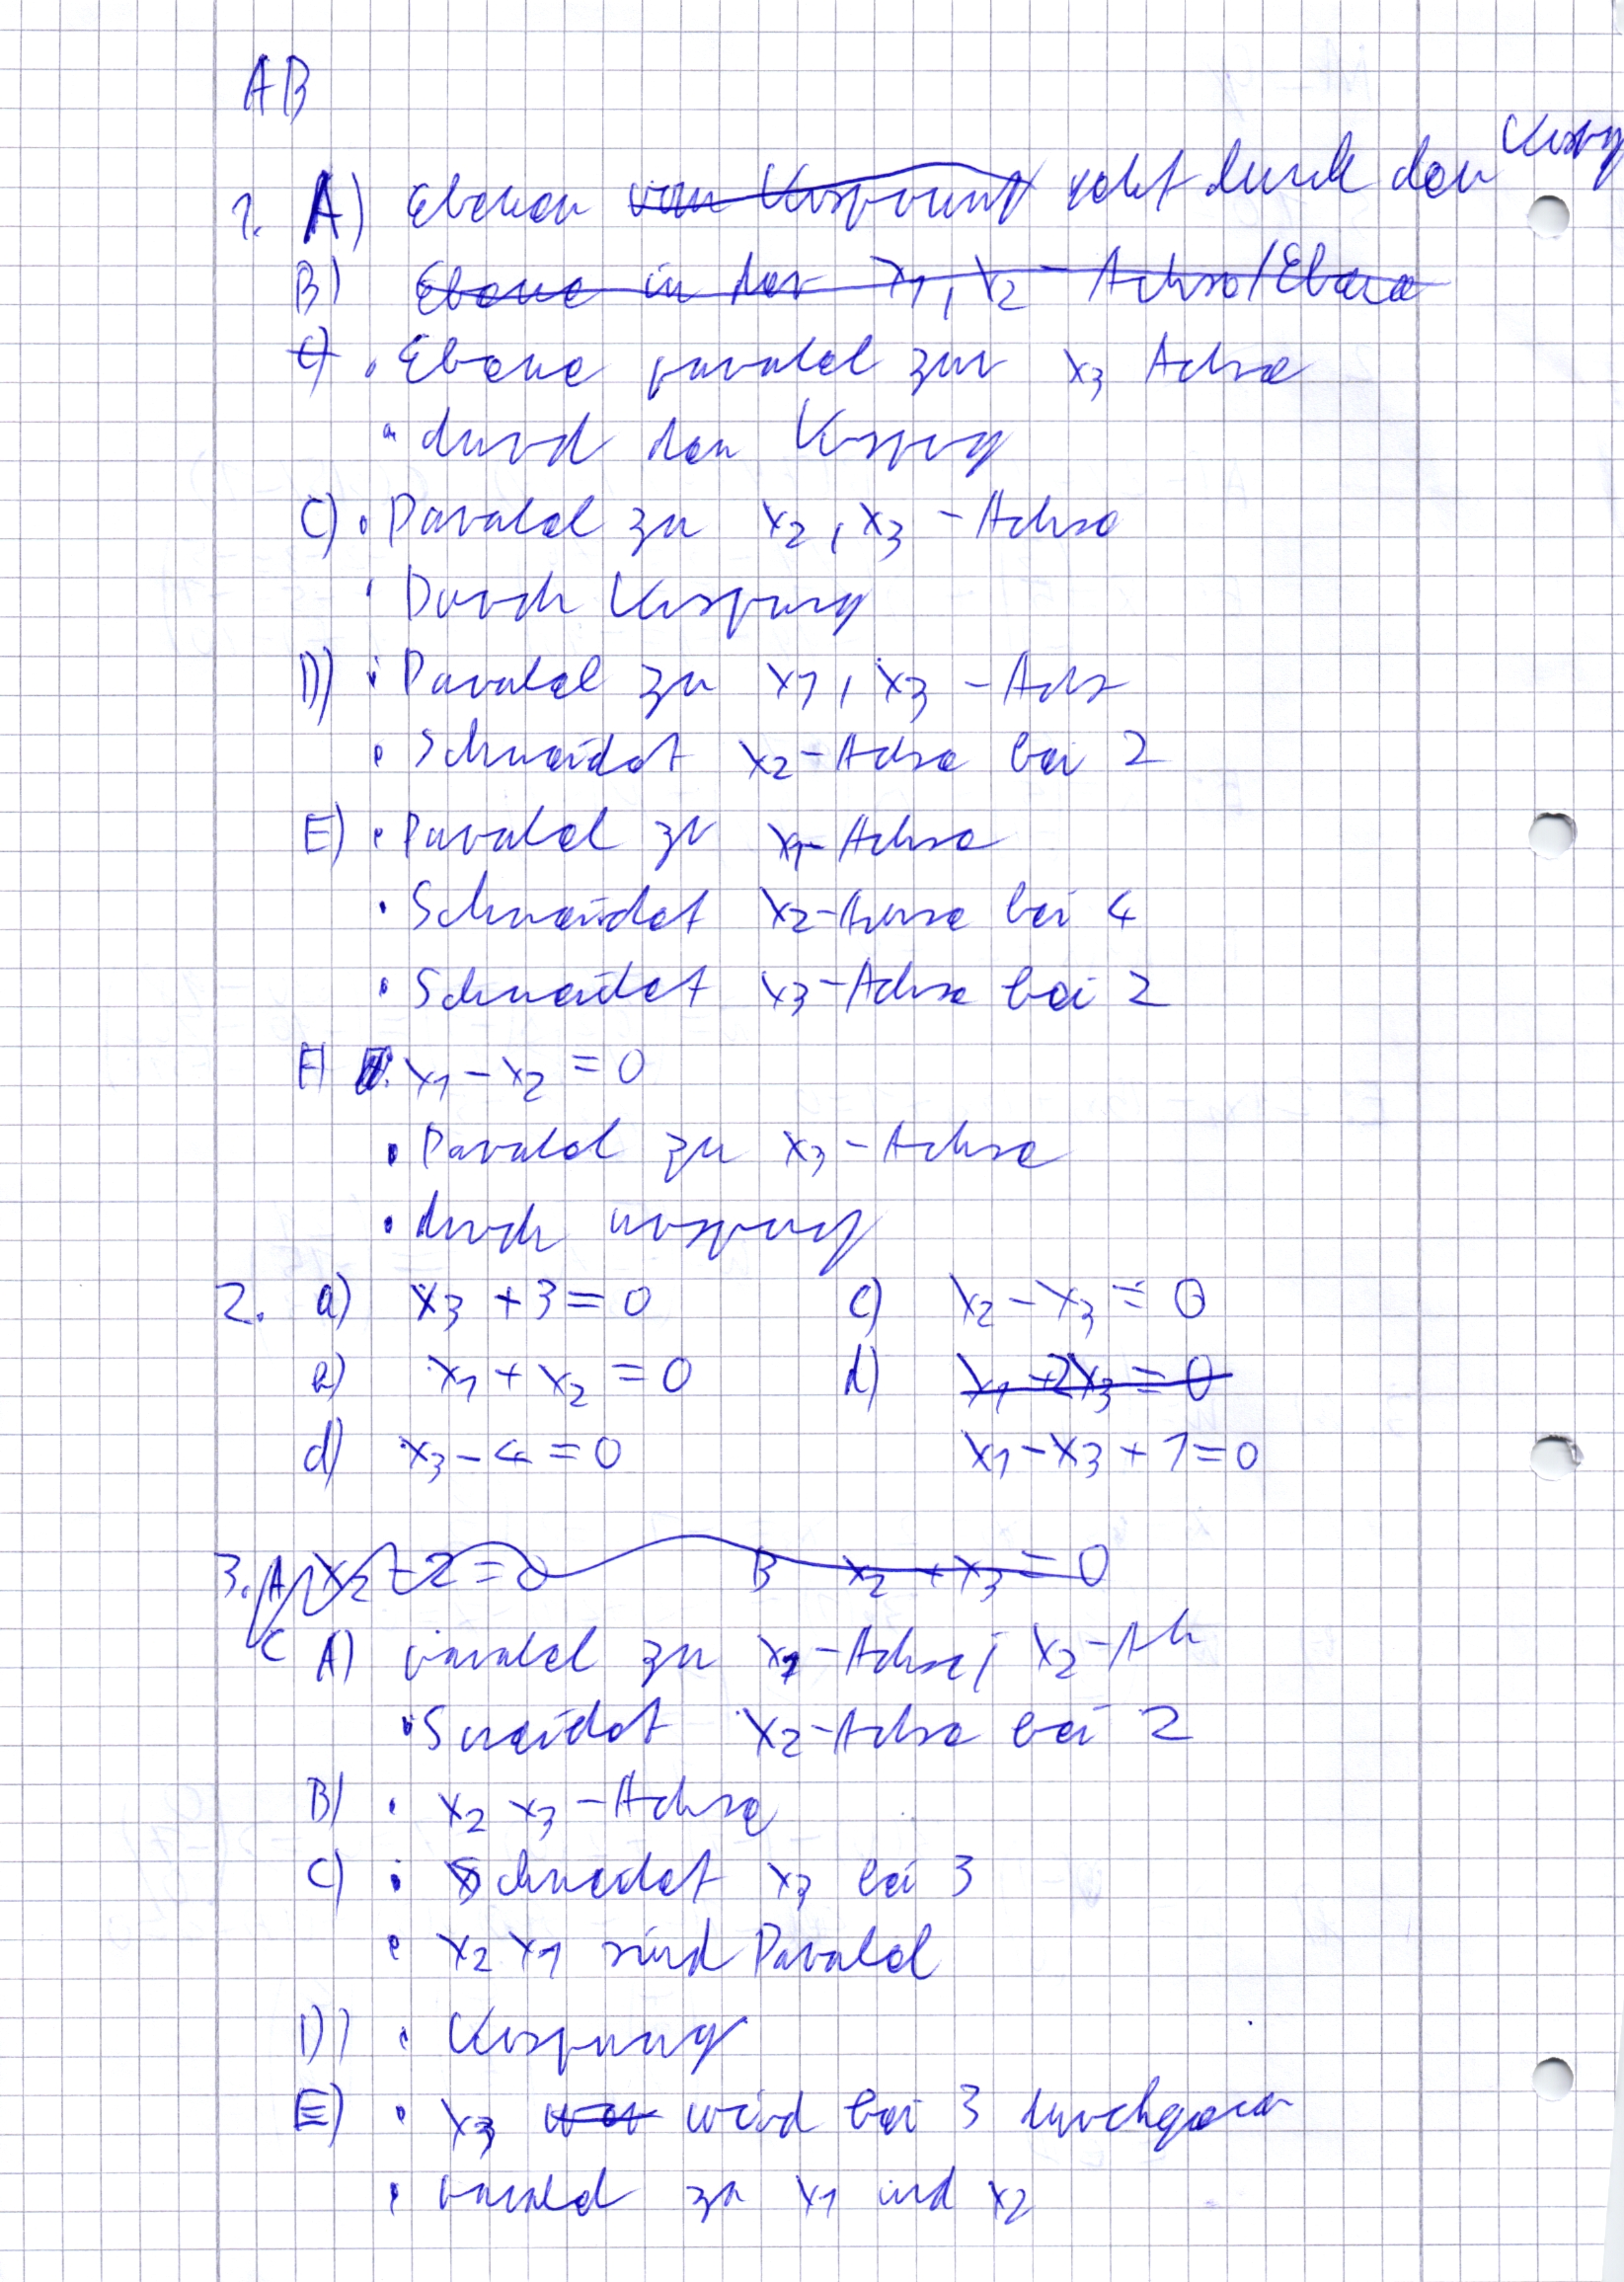 AB
1. A) Ebenen vom Ursprung geht durch den Ursprung
B) Ebene in der x1, x2 - Achse/Ebene
C) • Ebene paralel zur x3 Achse
• durch den Ursprung
C) • Paralel zu x2, x3 - Achse
• Durch Ursprung
D) • Paralel zu x1, x3 - Achs
• Schneidet x2-Achse bei 2
E) • Paralel zu x1-Achse
• Schneidet x2-Achse bei 4
• Schneidet x3-Achse bei 2
F) x1 - x2 = 0
• Paralel zu x3-Achse
• durch ursprung
2. a) x3 + 3 = 0 c) x2 - x3 = 0
x1 + x2 = 0 d) x1 - 2x3 = 0
d) x3 - 4 = 0 x1 - x3 + 1 = 0
3. A x2 - 2 = 0 B x2 + x3 = 0
C A) paralel zu -Achse;
• Sneidet x2-Achse bei 2
B) • x2 x3 - Achse
C) • Schnedet x3 bei 3
• x2 x1 sind Paralel
D) • Ursprung
E) • x3 wird bei 3 durchgeen
• paralel zu x1 und x2